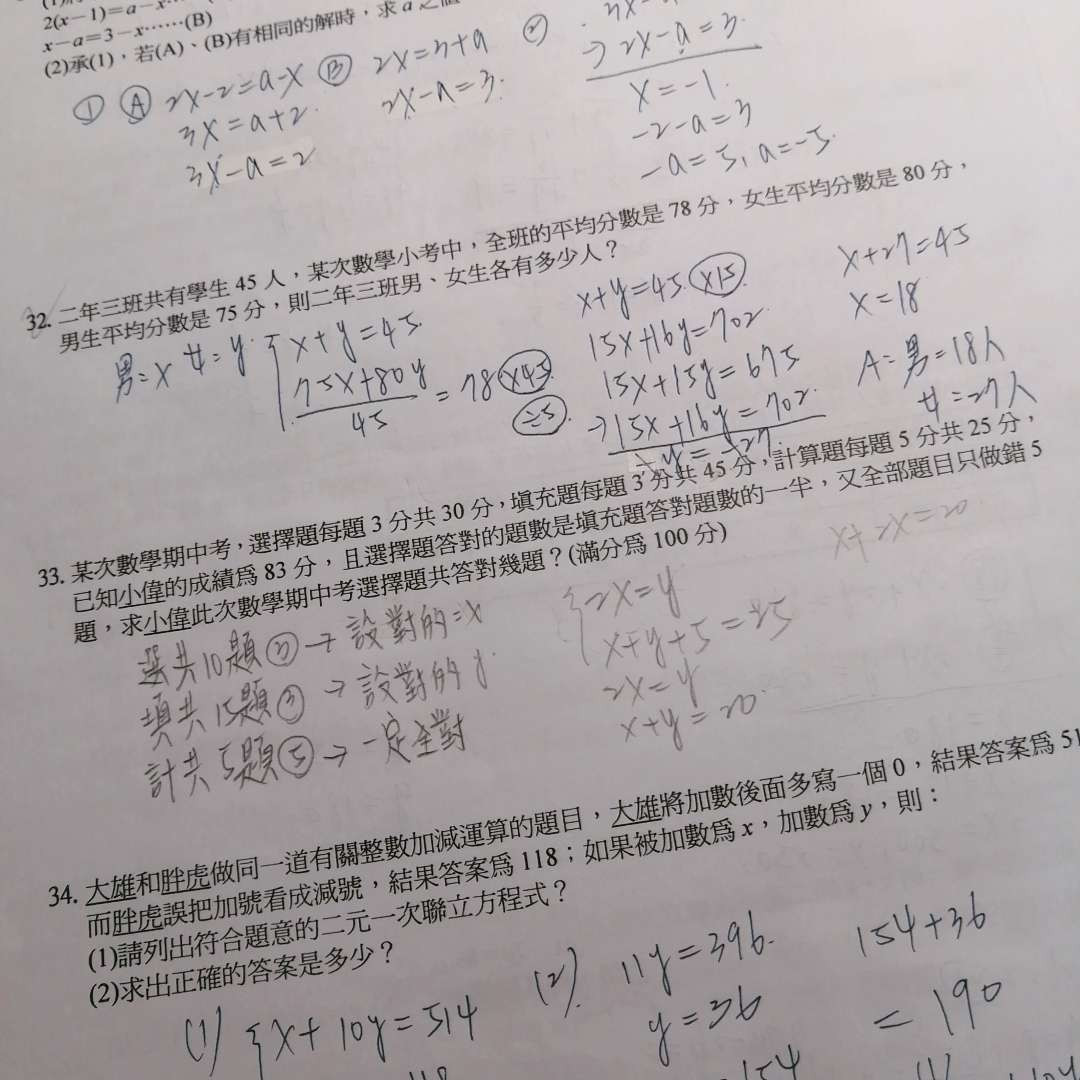 2(x−1)=a−x
x−a=3−x⋯⋯(B)
(2)承(1)，若(A)、(B)有相同的解時，求 a 之值
① Ⓐ 2x-2=a-x Ⓑ 2x=3+a ②
3x=a+2 2x-a=3.
3x-a=2
→ 2x-a=3.
x=-1.
-2-a=3
-a=5, a=-5.
32. 二年三班共有學生 45 人，某次數學小考中，全班的平均分數是 78 分，女生平均分數是 80 分，
男生平均分數是 75 分，則二年三班男、女生各有多少人？
男=x 女=y
x+y=45
75x+80y
45
=78 ×45
÷5
x+y=45. ×15
15x+16y=702
15x+15y=675
→15x+16y=702.
-y=-27.
x+27=45
x=18
A=男=18人
女=27人
33. 某次數學期中考，選擇題每題 3 分共 30 分，填充題每題 3 分共 45 分，計算題每題 5 分共 25 分，
已知小偉的成績為 83 分，且選擇題答對的題數是填充題答對題數的一半，又全部題目只做錯 5
題，求小偉此次數學期中考選擇題共答對幾題？(滿分為 100 分)
選共10題③→設對的=x
填共15題③→設對的y
計共5題⑤→一定全對
2x=y
x+y+5=25
2x=y
x+y=20
x+2x=20
34. 大雄和胖虎做同一道有關整數加減運算的題目，大雄將加數後面多寫一個 0，結果答案為 51
而胖虎誤把加號看成減號，結果答案為 118；如果被加數為 x，加數為 y，則：
(1)請列出符合題意的二元一次聯立方程式？
(2)求出正確的答案是多少？
(1) x+10y=514
(2). 11y=396.
y=36
154+36
=190